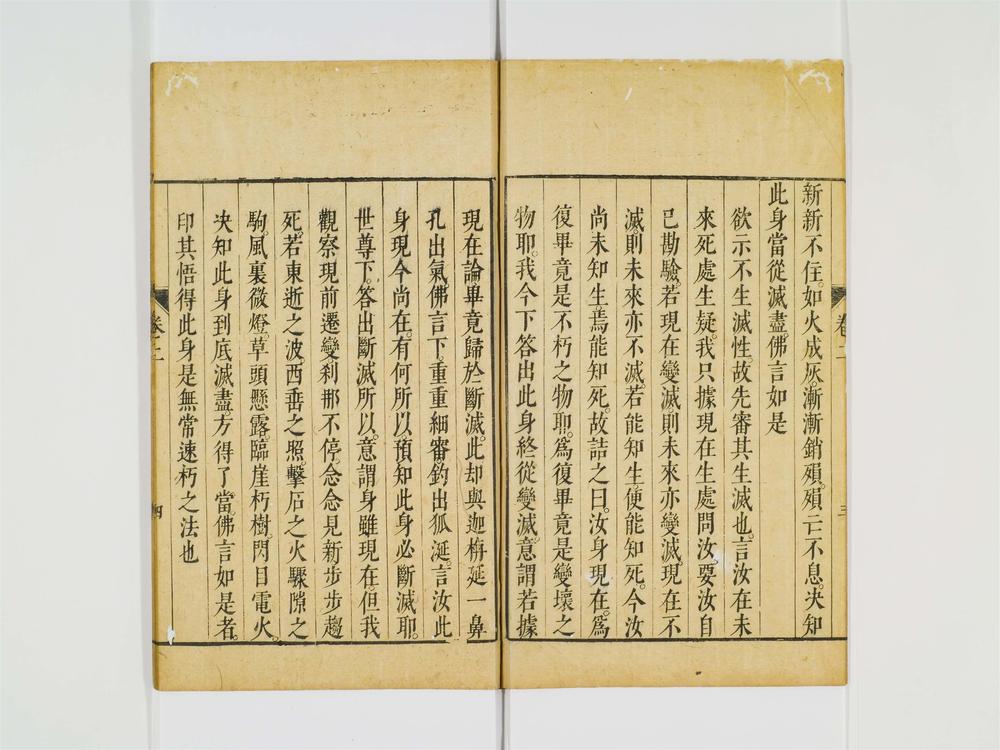 新新不住。如火成灰。漸漸銷殞。殞亡不息。决知
此身當從滅盡。佛言如是
欲示不生滅性。故先審其生滅也。言汝在未
來死處生疑。我只據現在生處問汝。要汝自
己勘驗。若現在變滅則未來亦變滅。現在不
滅則未來亦不滅。若能知生便能知死。今汝
尚未知生焉能知死。故詰之曰。汝身現在。爲
復畢竟是不朽之物耶。爲復畢竟是變壞之
物耶。我今下答出此身終從變滅。意謂若據
卷二
三
現在論畢竟歸於斷滅。此却與迦旃延一鼻
孔出氣。佛言下。重重細審釣出狐涎。言汝此
身現今尚在。有何所以預知此身必斷滅耶。
世尊下。答出斷滅所以。意謂身雖現在。但我
觀察現前遷變刹那不停。念念見新步步趨
死。若東逝之波。西垂之照。擊石之火。驟隙之
駒。風裏微燈。草頭懸露。臨崖朽樹。閃目電火。
决知此身到底滅盡。方得了當。佛言如是者。
印其悟得此身是無常速朽之法也
卷二
四